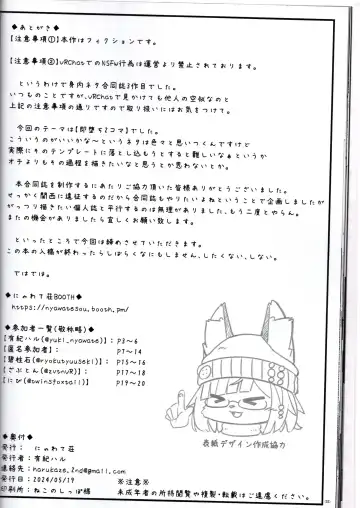 ◆あとがき◆
【注意事項①】本作はフィクションです。
【注意事項②】VRChatでのNSFW行為は運営より禁止されております。
というわけで身内ネタ合同誌3作目でした。
いつものことですが、VRChatで見かけても他人の空似なのと
上記の注意事項の通りですので取り扱いにはお気をつけて。
今回のテーマは【即堕ち2コマ】でした。
こういうのがいいかな～というネタは色々と思いつくんですけど
実際にそのテンプレートに落とし込もうとすると難しいなぁというか
オチよりもその過程を描きたいなと思うとか思わないとか。
本合同誌を制作するにあたりご協力頂いた皆様ありがとうございました。
せっかく関西に遠征するのだから合同誌もやりたいよねということで企画しましたが
がっつり描きたい個人誌と平行するのは無理がありました、もう二度とやらん。
またの機会がありましたら宜しくお願い致します。
といったところで今回は締めさせていただきます。
この本の入稿が終わったらしばらくなにもしません、したくない、しない。
ではでは。
◆にゃわて荘BOOTH◆
https://nyawatesou.booth.pm/
◆参加者一覧(敬称略)◆
【有紀ハル(@yuki_nyawate)】: P3～6
【匿名参加者】: P7～14
【碧柱石(@ryokutyuuseki)】: P15～16
【ざぶとん(@zutnvR)】: P17～18
【にび(@twin5foxtail)】: P19～20
表紙デザイン作成協力
◆奥付◆
発行: にゃわて荘
発行者: 有紀ハル
連絡先: harukaze.2nd@gmail.com
発行日: 2024/05/19
印刷所: ねこのしっぽ様
※注意※
未成年者の所持閲覧や複製・転載はご遠慮ください。